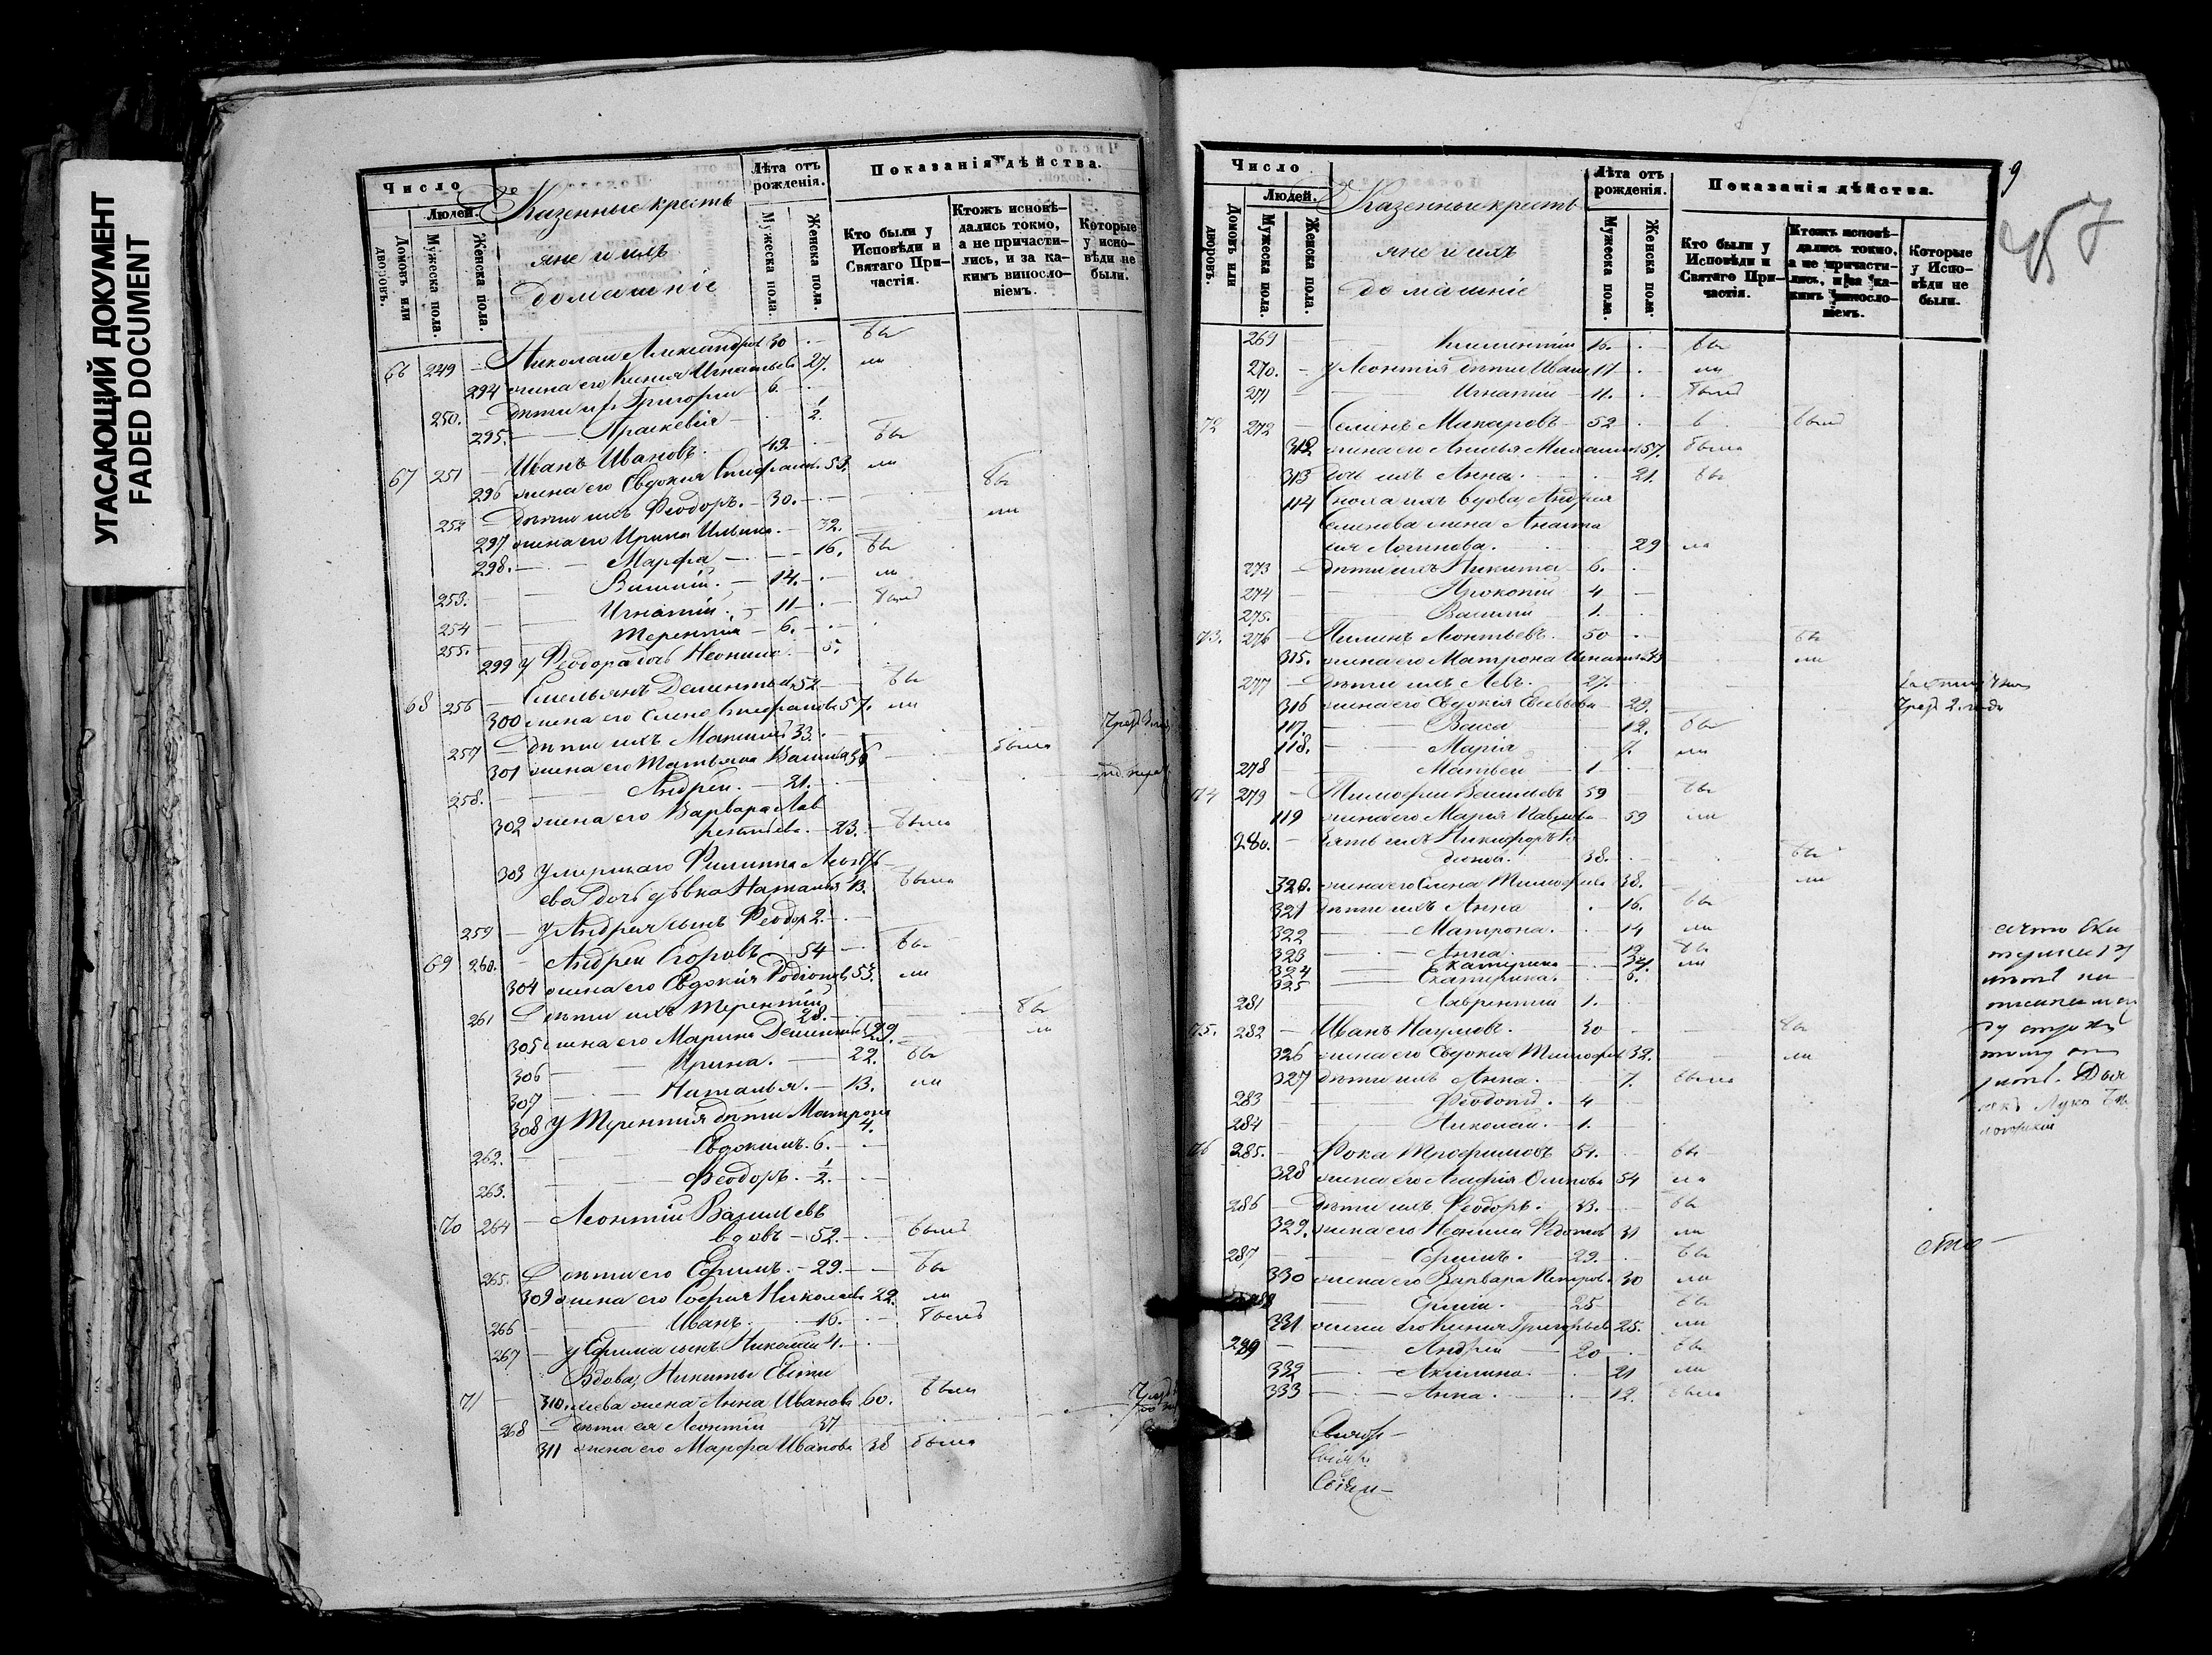 УГАСАЮЩИЙ ДОКУМЕНТ
FADED DOCUMENT
Число
Людей.
Домовъ или дворовъ.
Мужеска пола.
Женска пола.
Казенные кресть
яне и ихъ
домашніе
Лѣта отъ рожденія.
Мужеска пола.
Женска пола.
Показанія дѣйства.
Кто были у Исповѣди и Святаго Причастія.
Ктожъ исповѣдались токмо, а не причастились, и за какимъ винословіемъ.
Которые у исповѣди не были.
66 249 — Николаи Александров 30 бы
294 жена его Ксения Игнатьева 27. ли
250. — Дѣти их Григории 6.
295. Праскевія 1/2
67 251 — Иванъ Ивановъ. 49. бы
296 жена его Евдокия 53. ли
252 — Дѣти ихъ Феодоръ. 30. бы
297 жена его Ирина 32. ли
298. Марфа 16. бы
253. 14. ли
254 Игнатій. 11 былъ
255. Терентій 6.
299 у Феодора дочь Неонила 5.
68 256 — Емельянъ Дементьев 52 бы
300 жена его Елена Стефанова 57. ли
257 — Дѣти ихъ Максимъ 33.
301 жена его Татьяна 36 была
258. Андреи. 21.
302 жена его Варвара Лав
рентьева. 23. была
303 умершаго Филиппа Леонть
ева дочь дѣвка Наталья 13. была
259 — у Андрея сынъ Феодор 2.
69 260. — Андреи Егоровъ 54 бы
304 жена его Евдокія Родіонова 53. ли
261 Дѣти ихъ Терентій
28. бы
305 жена его Марина Дементьева 29. ли
306 Ирина. 22. бы
307 Наталья. 13. ли
308 у Терентія дѣти Матрона
4.
262. Евдокимъ. 6.
263. Феодоръ. 1/2
70 264 — Леонтій Васильевъ
вдовъ 52. былъ
265. Дѣти его Ефимъ. 29. бы
309 жена его Софья Николаева 22. ли
266 Иванъ 16. былъ
267 — у Ефима сынъ Николаи 4.
Вдова, Никиты
71 310. жена Анна Иванова 60. была
268 — Дѣти ея Леонтій 37
311 жена его Марфа Иванова 38 была
9
457
Число
Людей.
Домовъ или дворовъ.
Мужеска пола.
Женска пола.
Казенные кресть
яне и ихъ
домашніе
Лѣта отъ рожденія.
Мужеска пола.
Женска пола.
Показанія дѣйства.
Кто были у Исповѣди и Святаго Причастія.
Ктожъ исповѣдались токмо, а не причастились, и за какимъ винословіемъ.
Которые у Исповѣди не были.
269 16. бы
270. — у Леонтія дѣти Иван 17 ли
271 Игнатій 11. былъ
72 272 — Семенъ Макаровъ 52 былъ
312 жена его 57. была
313 дочь ихъ Анна. 21. бы
114 Сноха ихъ вдова, Андрея
Семенова жена
Логинова. 29 ла
273 — Дѣти ихъ Никита 6.
274 Прокопій 4
275. Василій 1.
73. 276 — Леонтьевъ. 50 бы
315. жена его Матрона ли
277 — Дѣти ихъ Левъ. 27.
316 жена его Евдокія 29.
117. Васса 12. бы
118. Марія 7. ли
278 Матвеи 1
74 279 — Тимофеи Васильевъ 59 бы
119 жена его Марія Павлова 59 ли
280. — зять ихъ Никифоръ
38. бы
320. жена его Елена Тимофеева 38. ли
321 дѣти ихъ Анна 16. бы
322 Матрона. 14 ли
323 Анна. 12. бы
324 Катерина ли
325 Екатерина. 6.
281 Лаврентіи 1.
75. 282 — Иванъ Наумовъ. 30 бы
326 жена его Евдокия Тимофеева 32. ли
327 дѣти ихъ Анна. 7. была
283 Феодотъ. 4
284 Николаи. 1.
76 285. — Фока Трофимовъ 54. бы
328 жена его Агафія Осипова 54 ли
286 — Дѣти ихъ Феодоръ. 33. бы
329. жена его Неонила Федотова 31 ли
287 Ефимъ. 29. бы
330 жена его Варвара Петрова 30 ли
288 25 бы
331 жена его Ксения Григорьева 25. ли
289 Андреи 20 бы
332 Акилина. 21 ли
333 Анна. 12. была